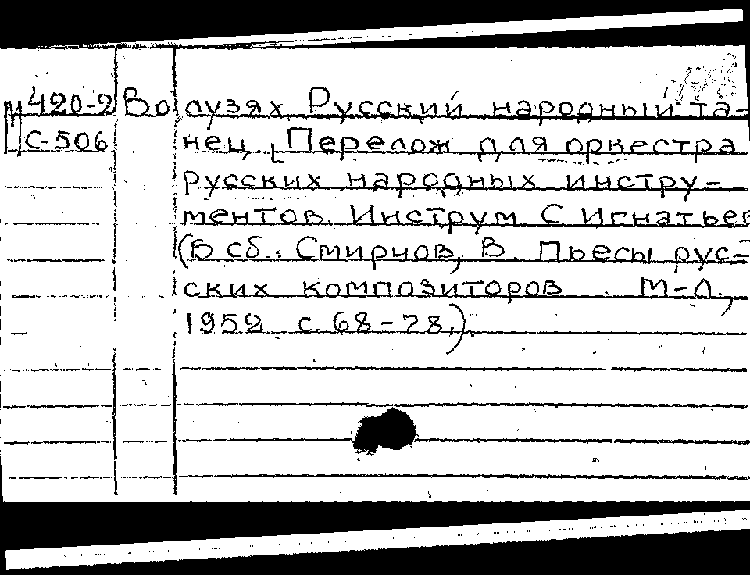 М420-2 Во лузях. Русский народный та-
С-506 нец. [Перелож для оркестра
русских народных инстру-
ментов. Инструм С Игнатьев
(В сб.: Смирнов, В. Пьесы рус-
ских композиторов. М-Л.,
1952 с. 68-78.).